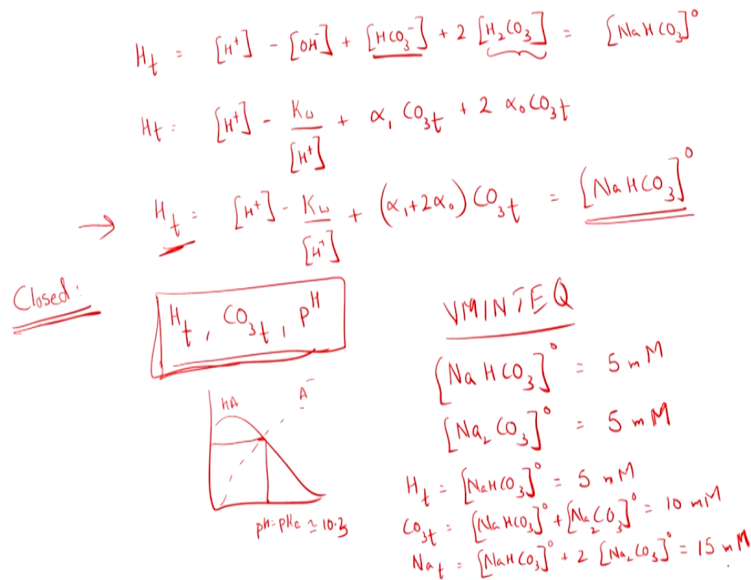 H_t = [H⁺] - [OH⁻] + [HCO₃⁻] + 2 [H₂CO₃] = [NaHCO₃]⁰
H_t = [H⁺] - K_w/[H⁺] + α₁ CO₃t + 2 α₀ CO₃t
→ H_t = [H⁺] - K_w/[H⁺] + (α₁+2α₀) CO₃t = [NaHCO₃]⁰
Closed:
H_t, CO₃t, pH
HA A⁻
pH=pKa ≃ 10.3
VMINTEQ
[NaHCO₃]⁰ = 5 mM
[Na₂CO₃]⁰ = 5 mM
H_t = [NaHCO₃]⁰ = 5 mM
CO₃t = [NaHCO₃]⁰ + [Na₂CO₃]⁰ = 10 mM
Na_t = [NaHCO₃]⁰ + 2 [Na₂CO₃]⁰ = 15 mM